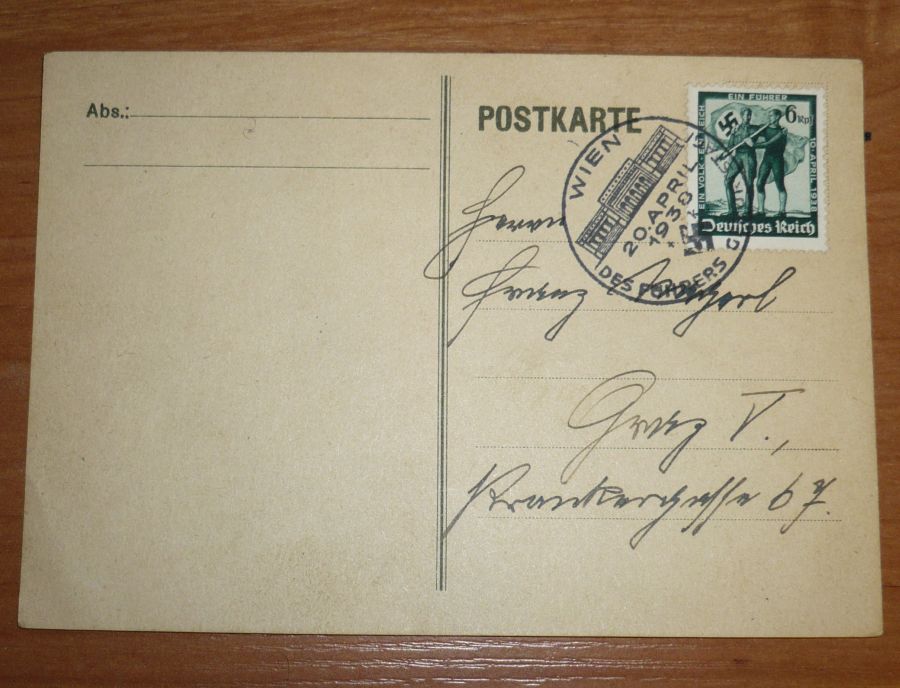 Abs.:
POSTKARTE
EIN VOLK EIN REICH
EIN FÜHRER
10. APRIL 1938
6 Rpf
Deutsches Reich
WIEN
20 APRIL
1938
DES FÜHRERS
Herrn
Franz
Graz V.,
67.